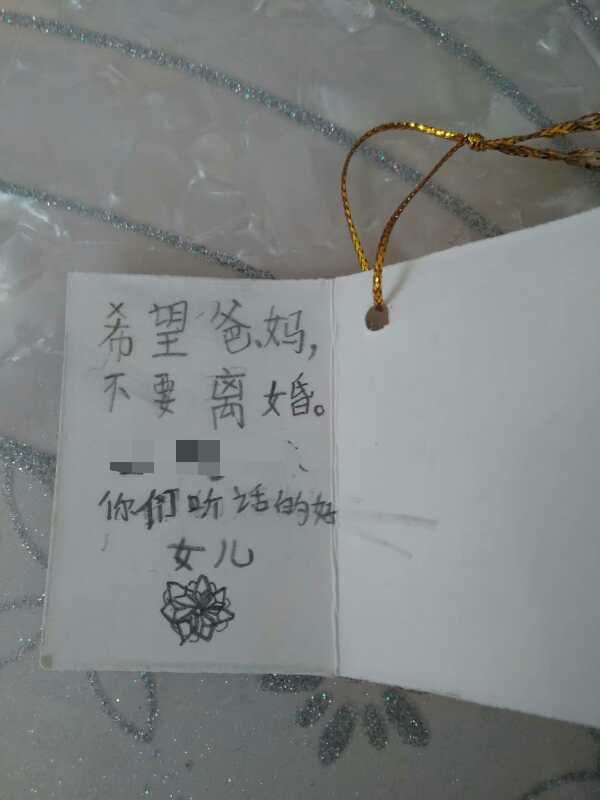 希望爸、妈,
不要离婚。
你们听话的好
女儿